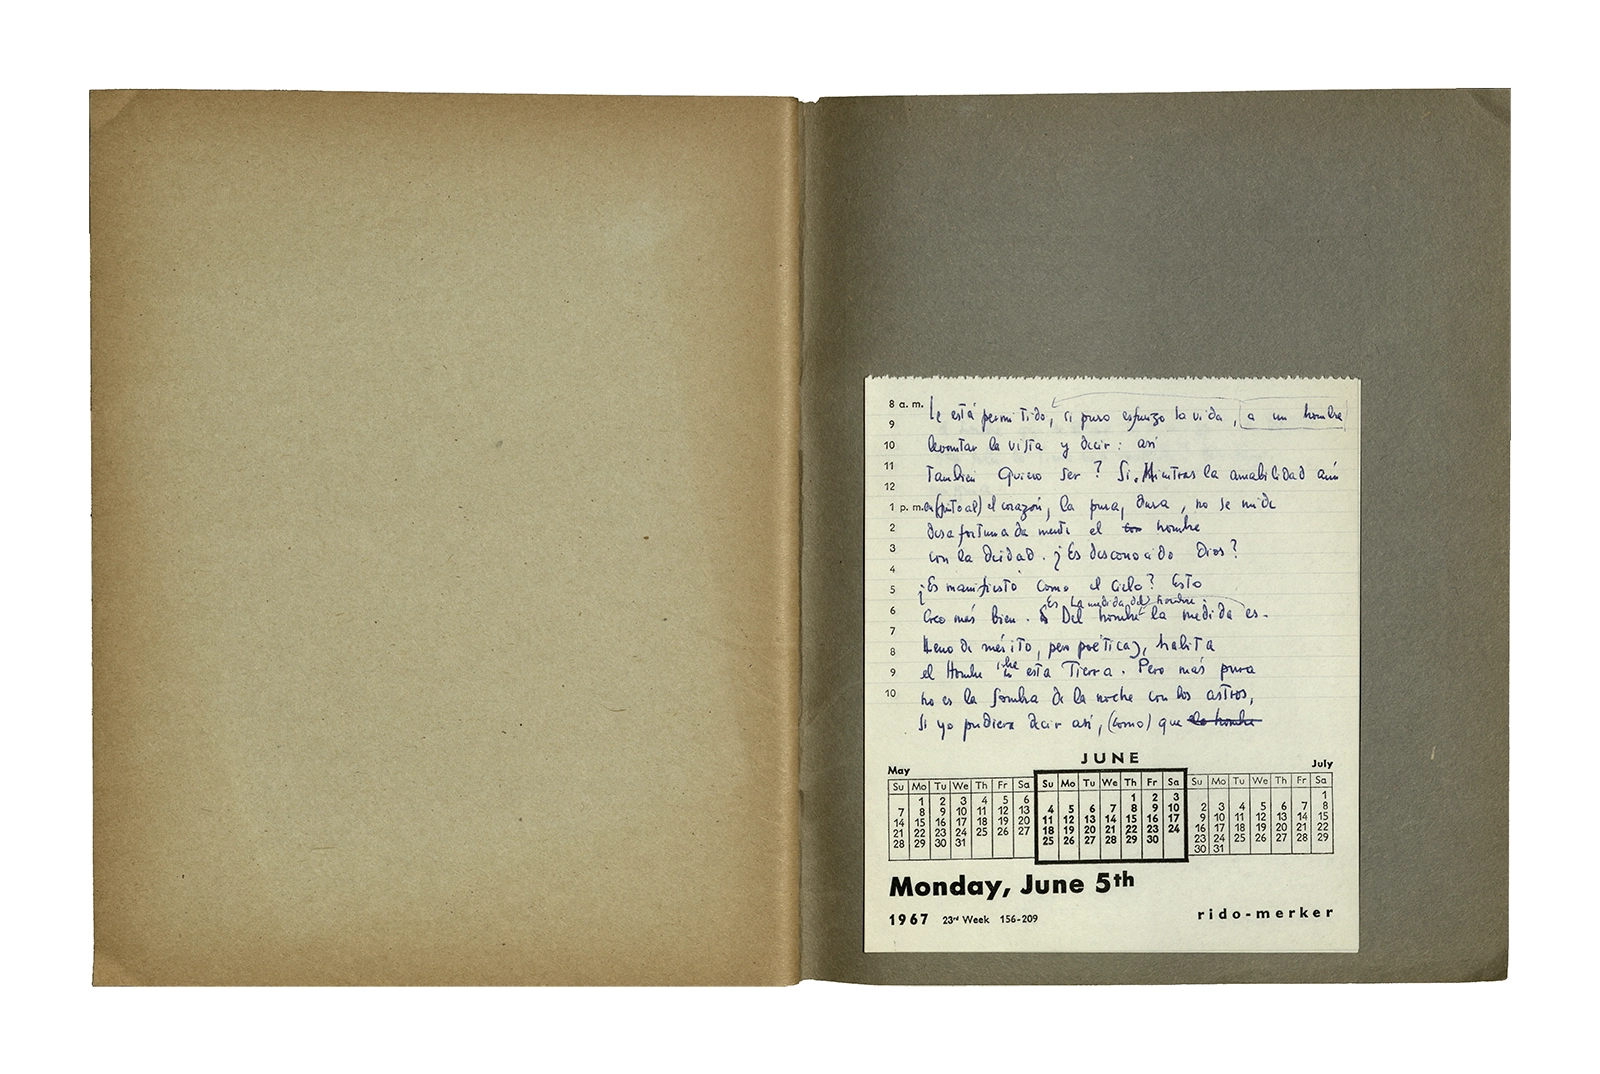 8 a. m. Le está permitido, si puro esfuerzo la vida, a un hombre
9
10 levantar la vista y decir: así
11 también quiero ser? Sí. Mientras la amabilidad aún
12
1 p. m. en (junto al) el corazón, la pura, dura, no se mide
2 desafortunadamente el con hombre
3 con la deidad. ¿Es desconocido Dios?
4
5 ¿Es manifiesto como el cielo? Esto
Es La medida del hombre.
6 Creo más bien. Del hombre la medida es.
7
8 Lleno de mérito, pero poética), habita
9 el Hombre en esta Tierra. Pero más pura
10 no es la sombra de la noche con los astros,
si yo pudiera decir así, (como) que el hombre
May
JUNE
July
Su Mo Tu We Th Fr Sa
1 2 3 4 5 6
7 8 9 10 11 12 13
14 15 16 17 18 19 20
21 22 23 24 25 26 27
28 29 30 31
Su Mo Tu We Th Fr Sa
1 2 3
4 5 6 7 8 9 10
11 12 13 14 15 16 17
18 19 20 21 22 23 24
25 26 27 28 29 30
Su Mo Tu We Th Fr Sa
1
2 3 4 5 6 7 8
9 10 11 12 13 14 15
16 17 18 19 20 21 22
23 24 25 26 27 28 29
30 31
Monday, June 5th
1967 23rd Week 156-209 rido-merker